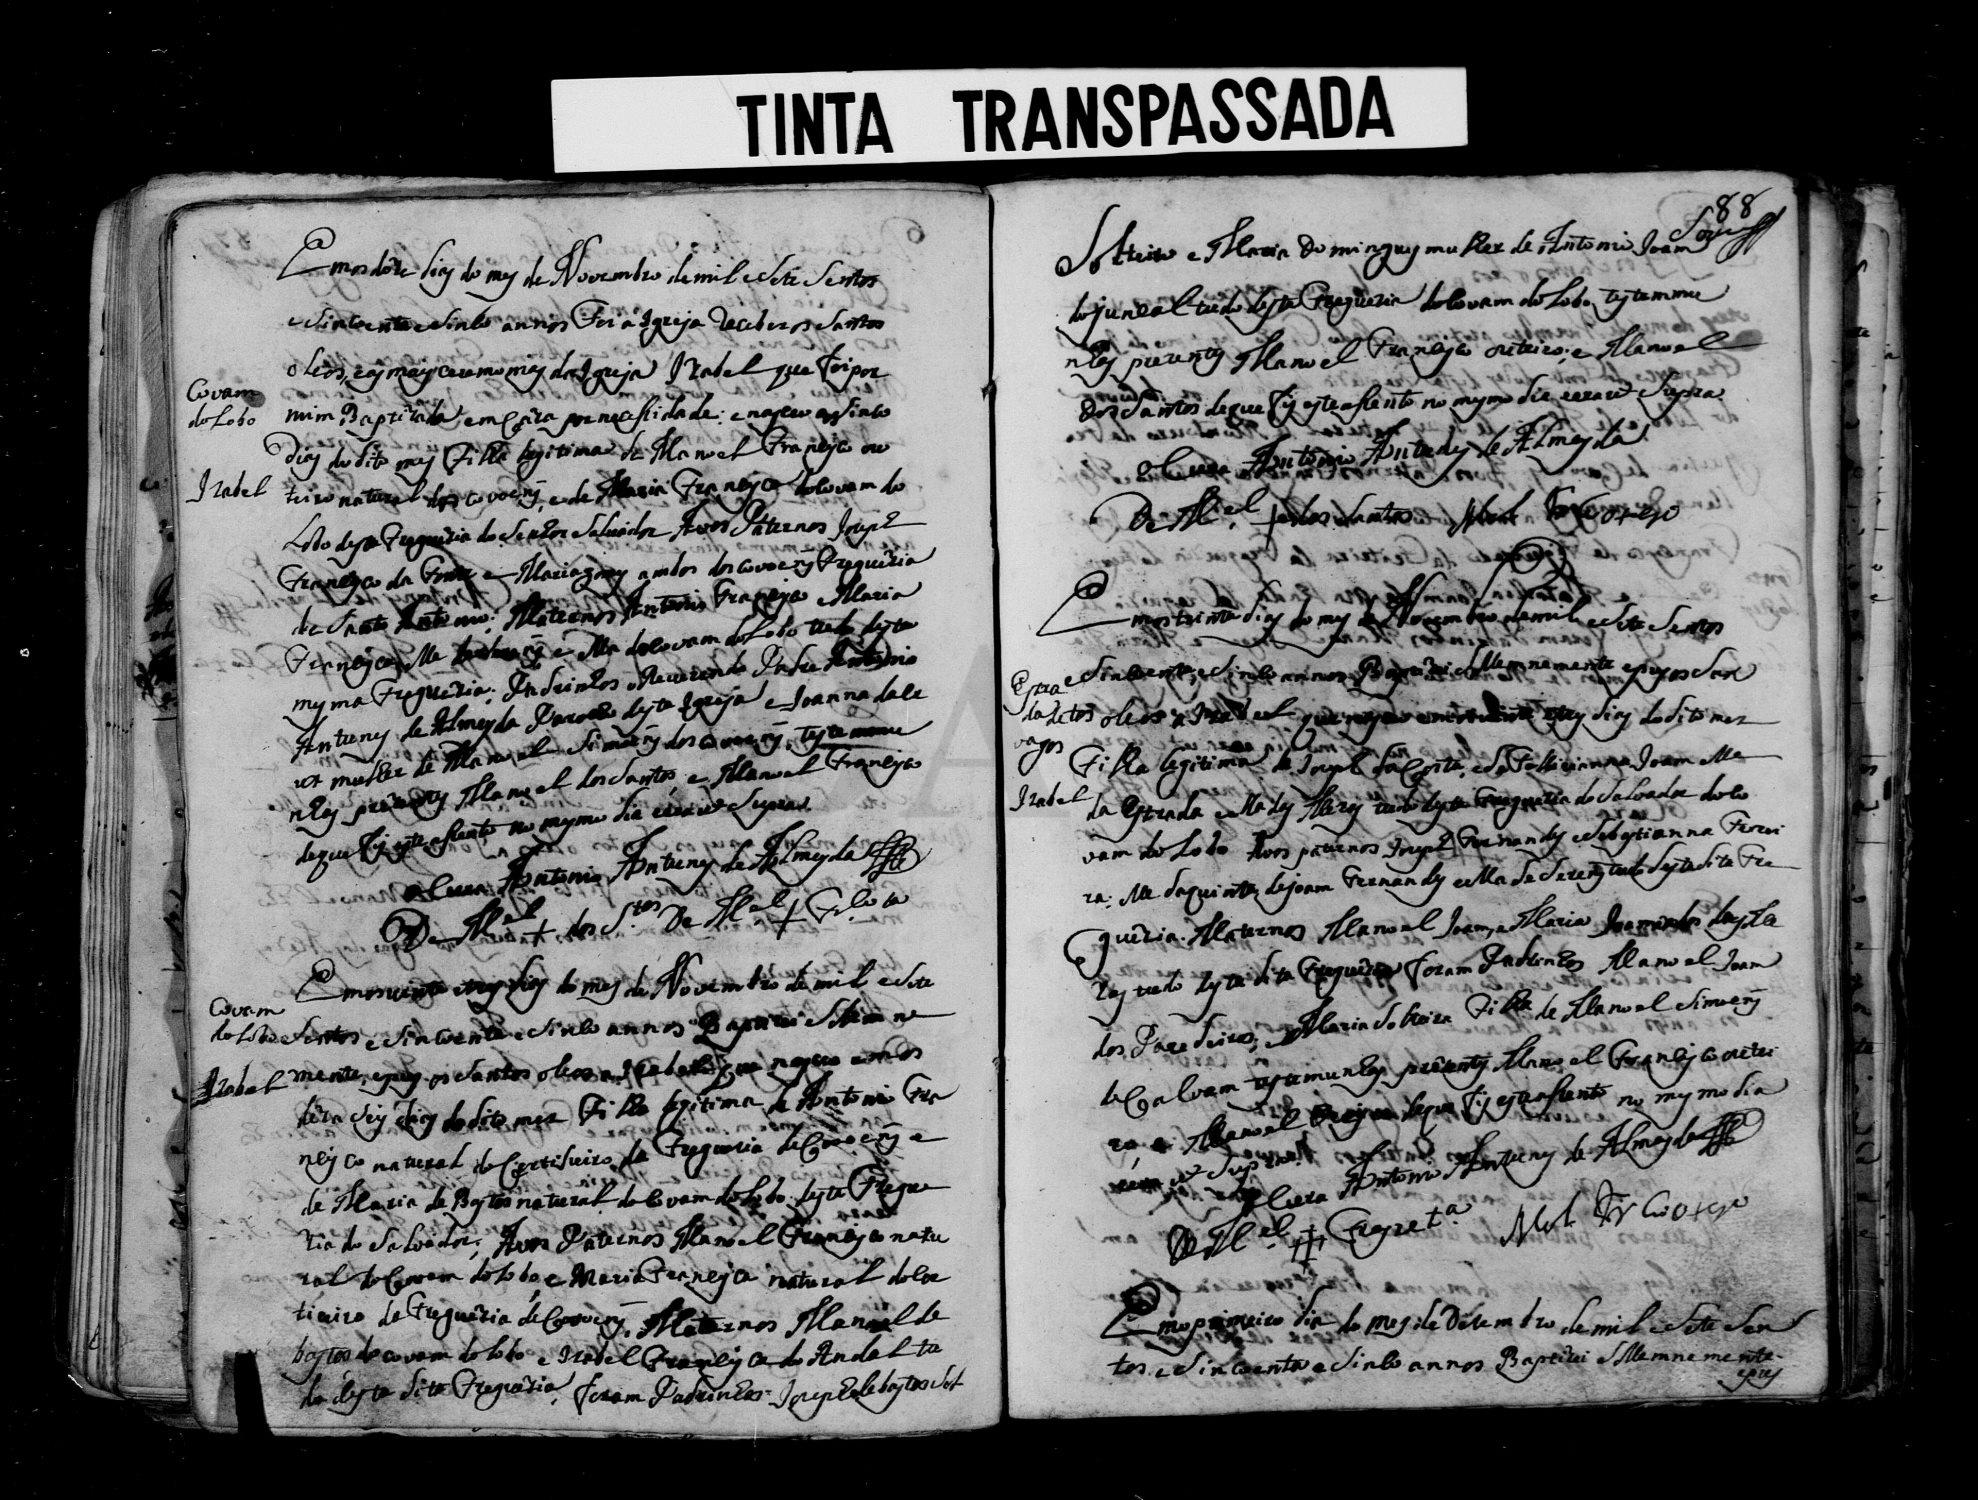 TINTA TRANSPASSADA
Emos doze dias do mes de Novembro de mil e Sete Sentos
e Sincoenta e Sinco annos Foi a Igreja Receber os Santos
oleos, e as mais ceremonias da Igreja Izabel que Foi por
Covam
do Lobo
mim Baptizada em Caza por necessidade: e nasceo aos Sinco
dias do dito mes Filha legitima de Manoel Francisco ou
Izabel
teiro natural dos covoens, e de Maria Francisca do covam do
Lobo desta Freguezia do Senhor Salvador Avos Paternos Joseph
Francisco da Fonte e Maria gomes ambos dos covoens Freguezia
de Santo Antonio; Maternos Antonio Francisco e Maria
Francisca elle e ella do covam do Lobo tudo desta
mesma Freguezia; Padrinhos o Reverendo Padre Antonio
Antunes de Almeyda Paroco desta Igreja e Joanna da
mulher de Manoel Simoens dos covoens, testemu
nhas prezentes Manoel dos Santos, e Manoel Francisco
de que Fis este asento no mesmo dia era ut Supra
o Cura Antonio Antunes de Almeyda
De M.el + dos S.tos De M.el +
Emos vinte e tres dias do mes de Novembro de mil e Sete
Covam
do Lobo
Sentos e Sincoenta e Sinco annos Baptizei Solemne
Izabel
mente, e pus os Santos oleos a Izabel que nasceo emos
deza seis dias do dito mes Filha legitima de Antonio Fra
ncisco natural do da Freguezia de Covoens e
de Maria de Bastos natural do Covam do Lobo desta Fregue
zia do Salvador; Avos Paternos Manoel Francisco natu
ral do Covam do Lobo e Maria Francisca natural do cor
ticeiro de Freguezia de Covoens, Maternos Manoel de
bastos do covam do Lobo e Izabel Francisca do Andal ta
do desta dita Freguezia, Foram Padrinhos: Joseph de bastos Sol
88
Solteiro e Maria Domingues mulher de Antonio Joam
do juncal tudo desta Freguezia do Covam do Lobo, testemu
nhas prezentes Manoel Francisco outeiro: e Manoel
dos Santos de que Fis este asento no mesmo dia era ut Supra
o Cura Antonio Antunes de Almeyda
De M.el + dos Santos
Emos trinta dias do mes de Novembro de mil e Sete Sentos
Estra
da
vagos
Izabel
e Sincoenta e Sinco annos Baptizei Solemnemente e pus os San
tos oleos a Izabel que nasceo em os vinte e tres dias do dito mes
Filha legitima de Joseph da Costa, e Joam elle
da Estrada ella das tudo desta Freguezia do Salvador do co
vam do Lobo Avos paternos Joseph Fernandes e Sebastianna Ferrei
ra; elle da quinta de joam Fernandes e ella de tudo desta dita Fre
guezia. Maternos Manoel Joam, e Maria
tudo desta dita Freguezia Foram Padrinhos Manoel Joam
dos Paredeiros; e Maria Solteira Filha de Manoel Simoens
do Calvam testemunhas prezentes Manoel Francisco outei
ro, e Manoel de que Fis este asento no mesmo dia
era ut Supra
o Cura Antonio Antunes de Almeyda
De M.el +
Emo primeiro dia do mes de Dezembro de mil e Sete Sen
tos e Sincoenta e Sinco annos Baptizei Solemnemente
e pus